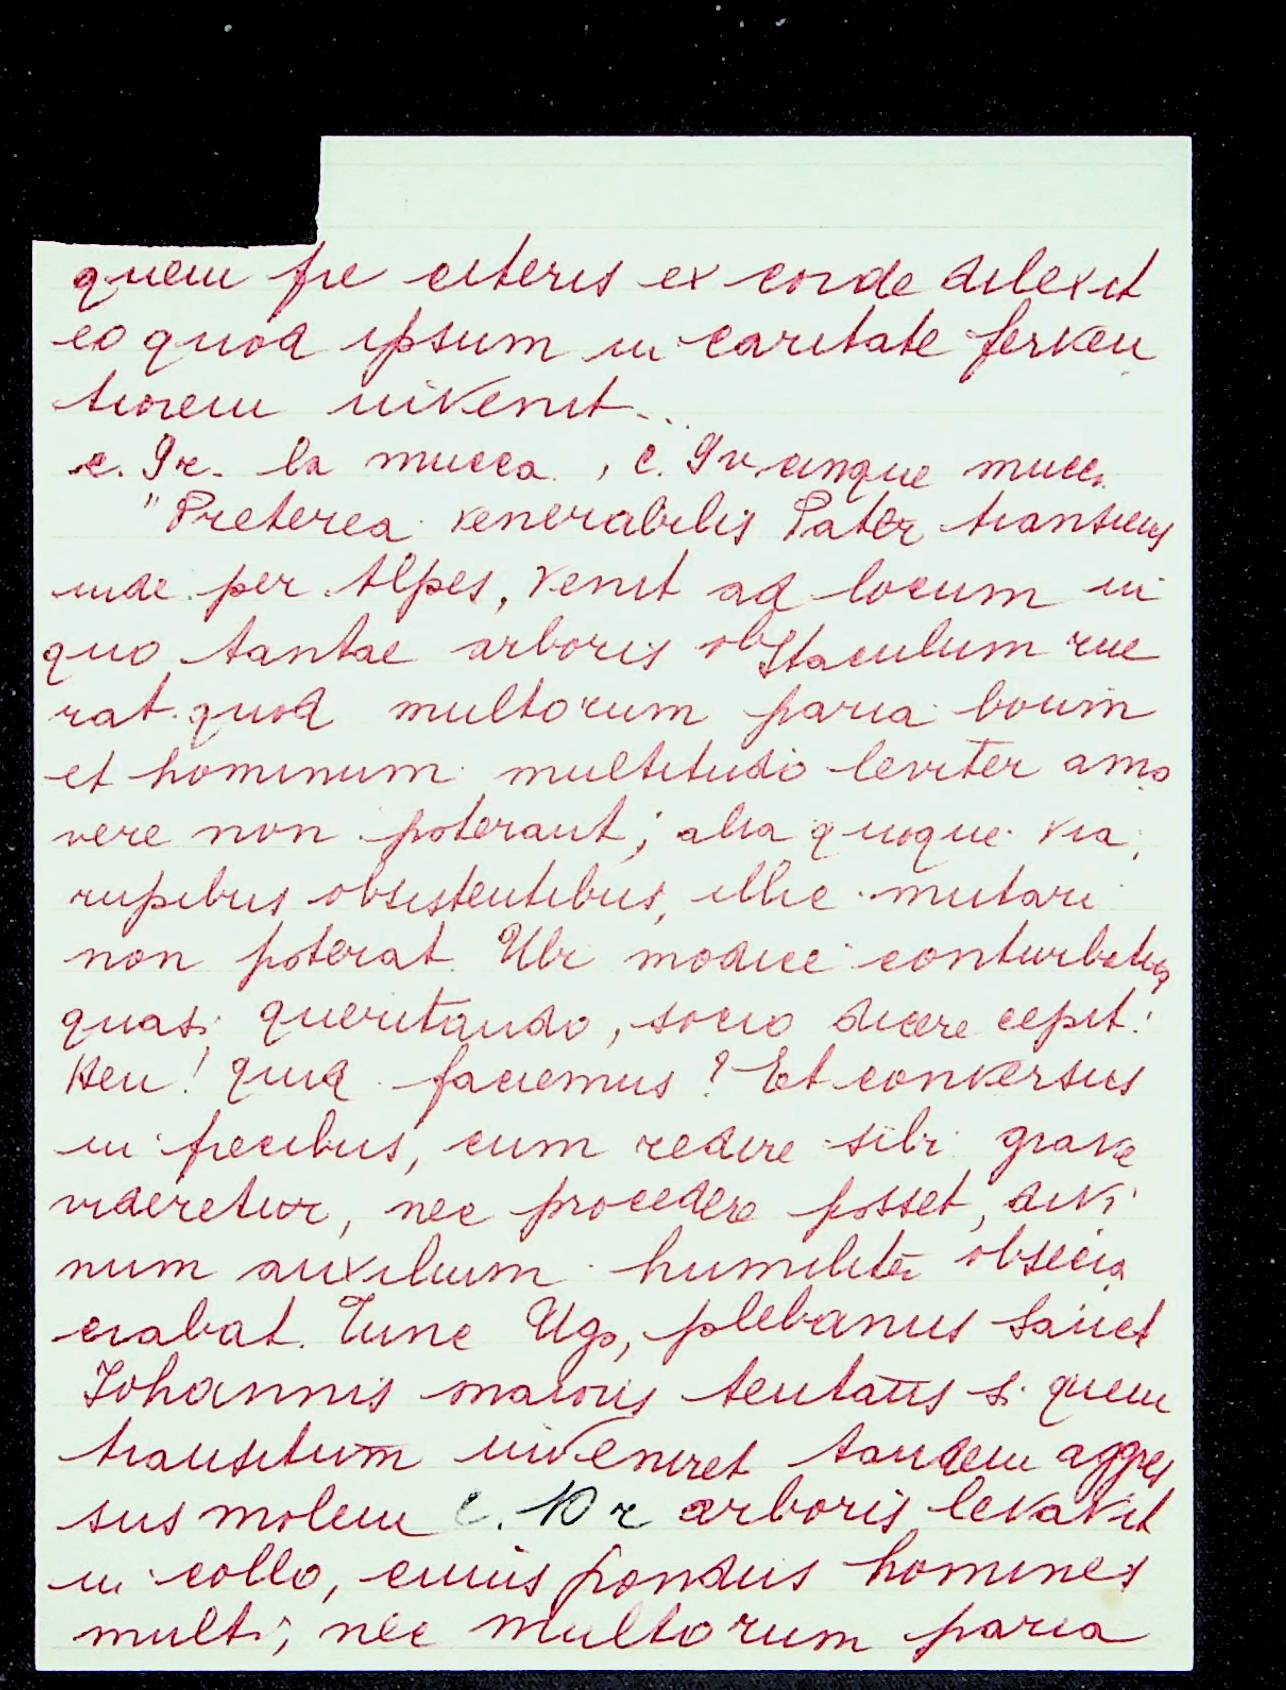 quem pre ceteris ex corde dilexit
eo quod ipsum in caritate ferven
tiorem invenit...
c. 9r. la mucca, c. 9v cinque mucc.
"Preterea venerabilis Pater transiens
inde per Alpes, venit ad locum in
quo tantae arboris obstaculum rue
rat quod multorum paria boum
et hominum multitudo leviter amo
vere non poterant; alia quoque via,
rupibus obsistentibus, illic mutari
non poterat. Ubi modice conturbatus
quasi queritando, socio dicere cepit:
Heu! quid faciemus? Et conversus
in precibus, cum redire sibi grave
videretur, nec procedere posset, divi
num auxilium humilitē obsecra
crabat. Tunc Ugo, plebanus Sanct
Johannis maioris tentans si quem
transitum inveniret tandem aggres
sus molem c. 10 r arboris levavit
in collo, cuius pondus homines
multi, nec multorum paria